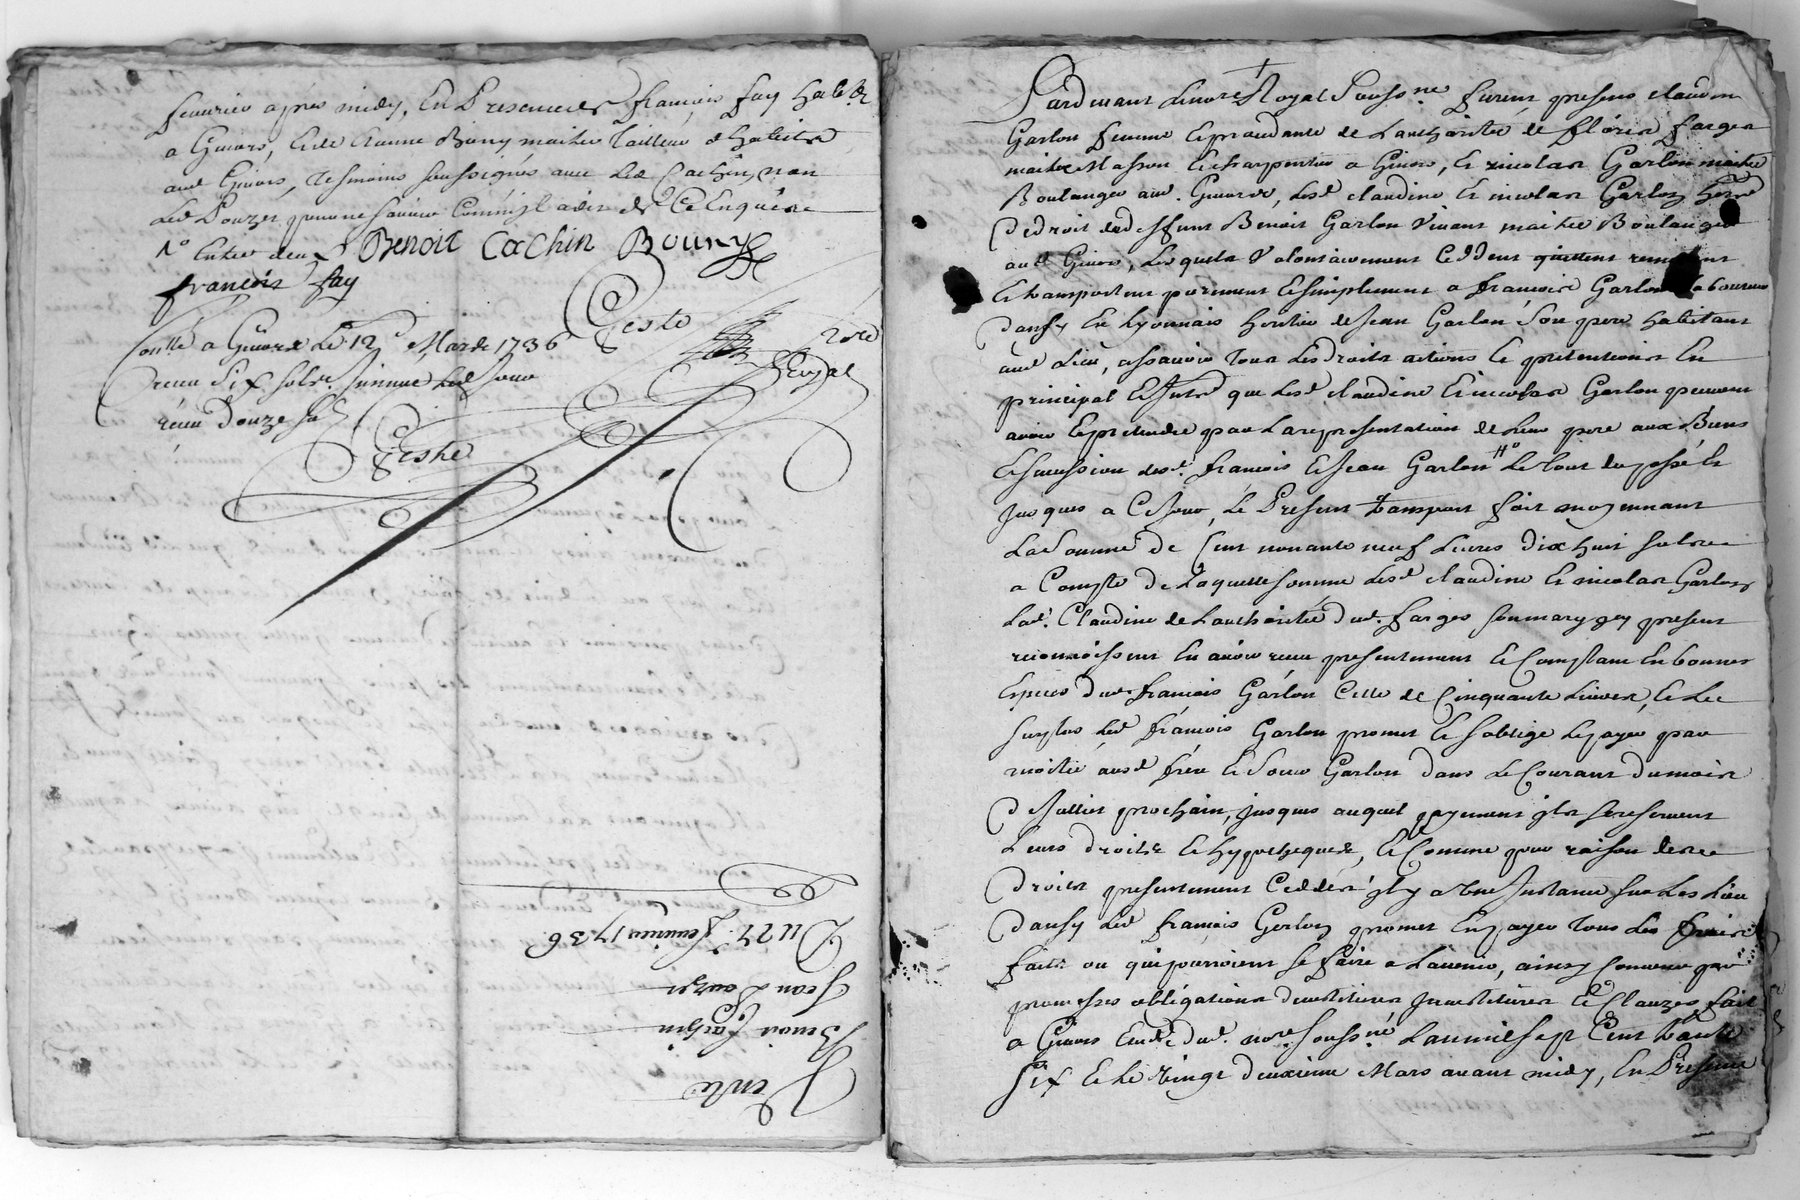 feuvrier apres midy, En Presence de françois fay habt.
a Givors, Et de Bouny maitre Tailleur d'habits
aud Givors, Tesmoins soussignés avec Led Cachin, non
Led Pouzet pour ne sçavoir Ecrire
Benoit Cachin Bouny
françois fay
Conllé a Givors Le 12e Mars 1736
receu Six sols
receu Douze sols
Geste
Geste
Not Royal
Vente
Benoit Cachin
Jean Pouzet
Du 27 feuvrier 1736
Pardevant Le notre Royal Souss.ne furent presens claudine
Garlon femme de Lauthorité de farges
maitre Masson Et charpentier a Givors, Et nicolas Garlon maitre
Boulanger aud. Givors, Lesd claudine Et nicolas Garlon
De droit de deffunt Benoit Garlon Vivant maitre Boulanger
aud Givors, Lesquels Volontairement Ceddent quittent remettent
Et transportent purement Et simplement a françois Garlon Laboureur
dansy En Lyonnais heritier de Jean Garlon Son pere habitant
aud Lieu, assavoir Tous Les droits actions Et pretentions En
principal Et que Lesd claudine Et nicolas Garlon peuvent
avoir Et pretendre par La representation de Leur pere aux Biens
Et sucession desd. françois Et Jean Garlon Le tout du passé Et
Jusques a Ce Jour, Le Present transport fait moyennant
La Somme de Cent nonante neuf Livres dix huit sols
a Compte De Laquelle somme Lesd claudine Et nicolas Garlon
Lad. Claudine de Lauthorité dud. farges son mary present
reconnoissent En avoir receu presentement Et Comptant En bonnes
Especes dud françois Garlon Celle de Cinquante Livres, Et Le
surplus Led françois Garlon promet Et soblige Le payer par
moitié ausd frere Et Soeur Garlon dans Le Courant du mois
De Juillet prochain, Jusques auquel payement ils se reservent
Leurs droits Et hypotheques, Et Comme pour raison desd
Droits presentement Ceddés il y a Une Instance
dansy Led françois Garlon promet En payer Tous Les frais
faits ou qui pourroient se faire a Lavenir, ainsy Convenu par
promesses obligations Et Clauzes fait
a Givors Etude dud. not. Souss.né Lan mil sept Cent trante
Six Et Le Vingt deuxieme Mars avant midy, En Presence